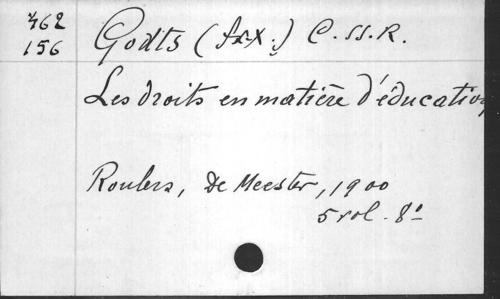 462
156
Godts (f.x.) C.SS.R.
Les droits en matière d'éducation
Roulers, De Meester, 1900
5 vol. 8º